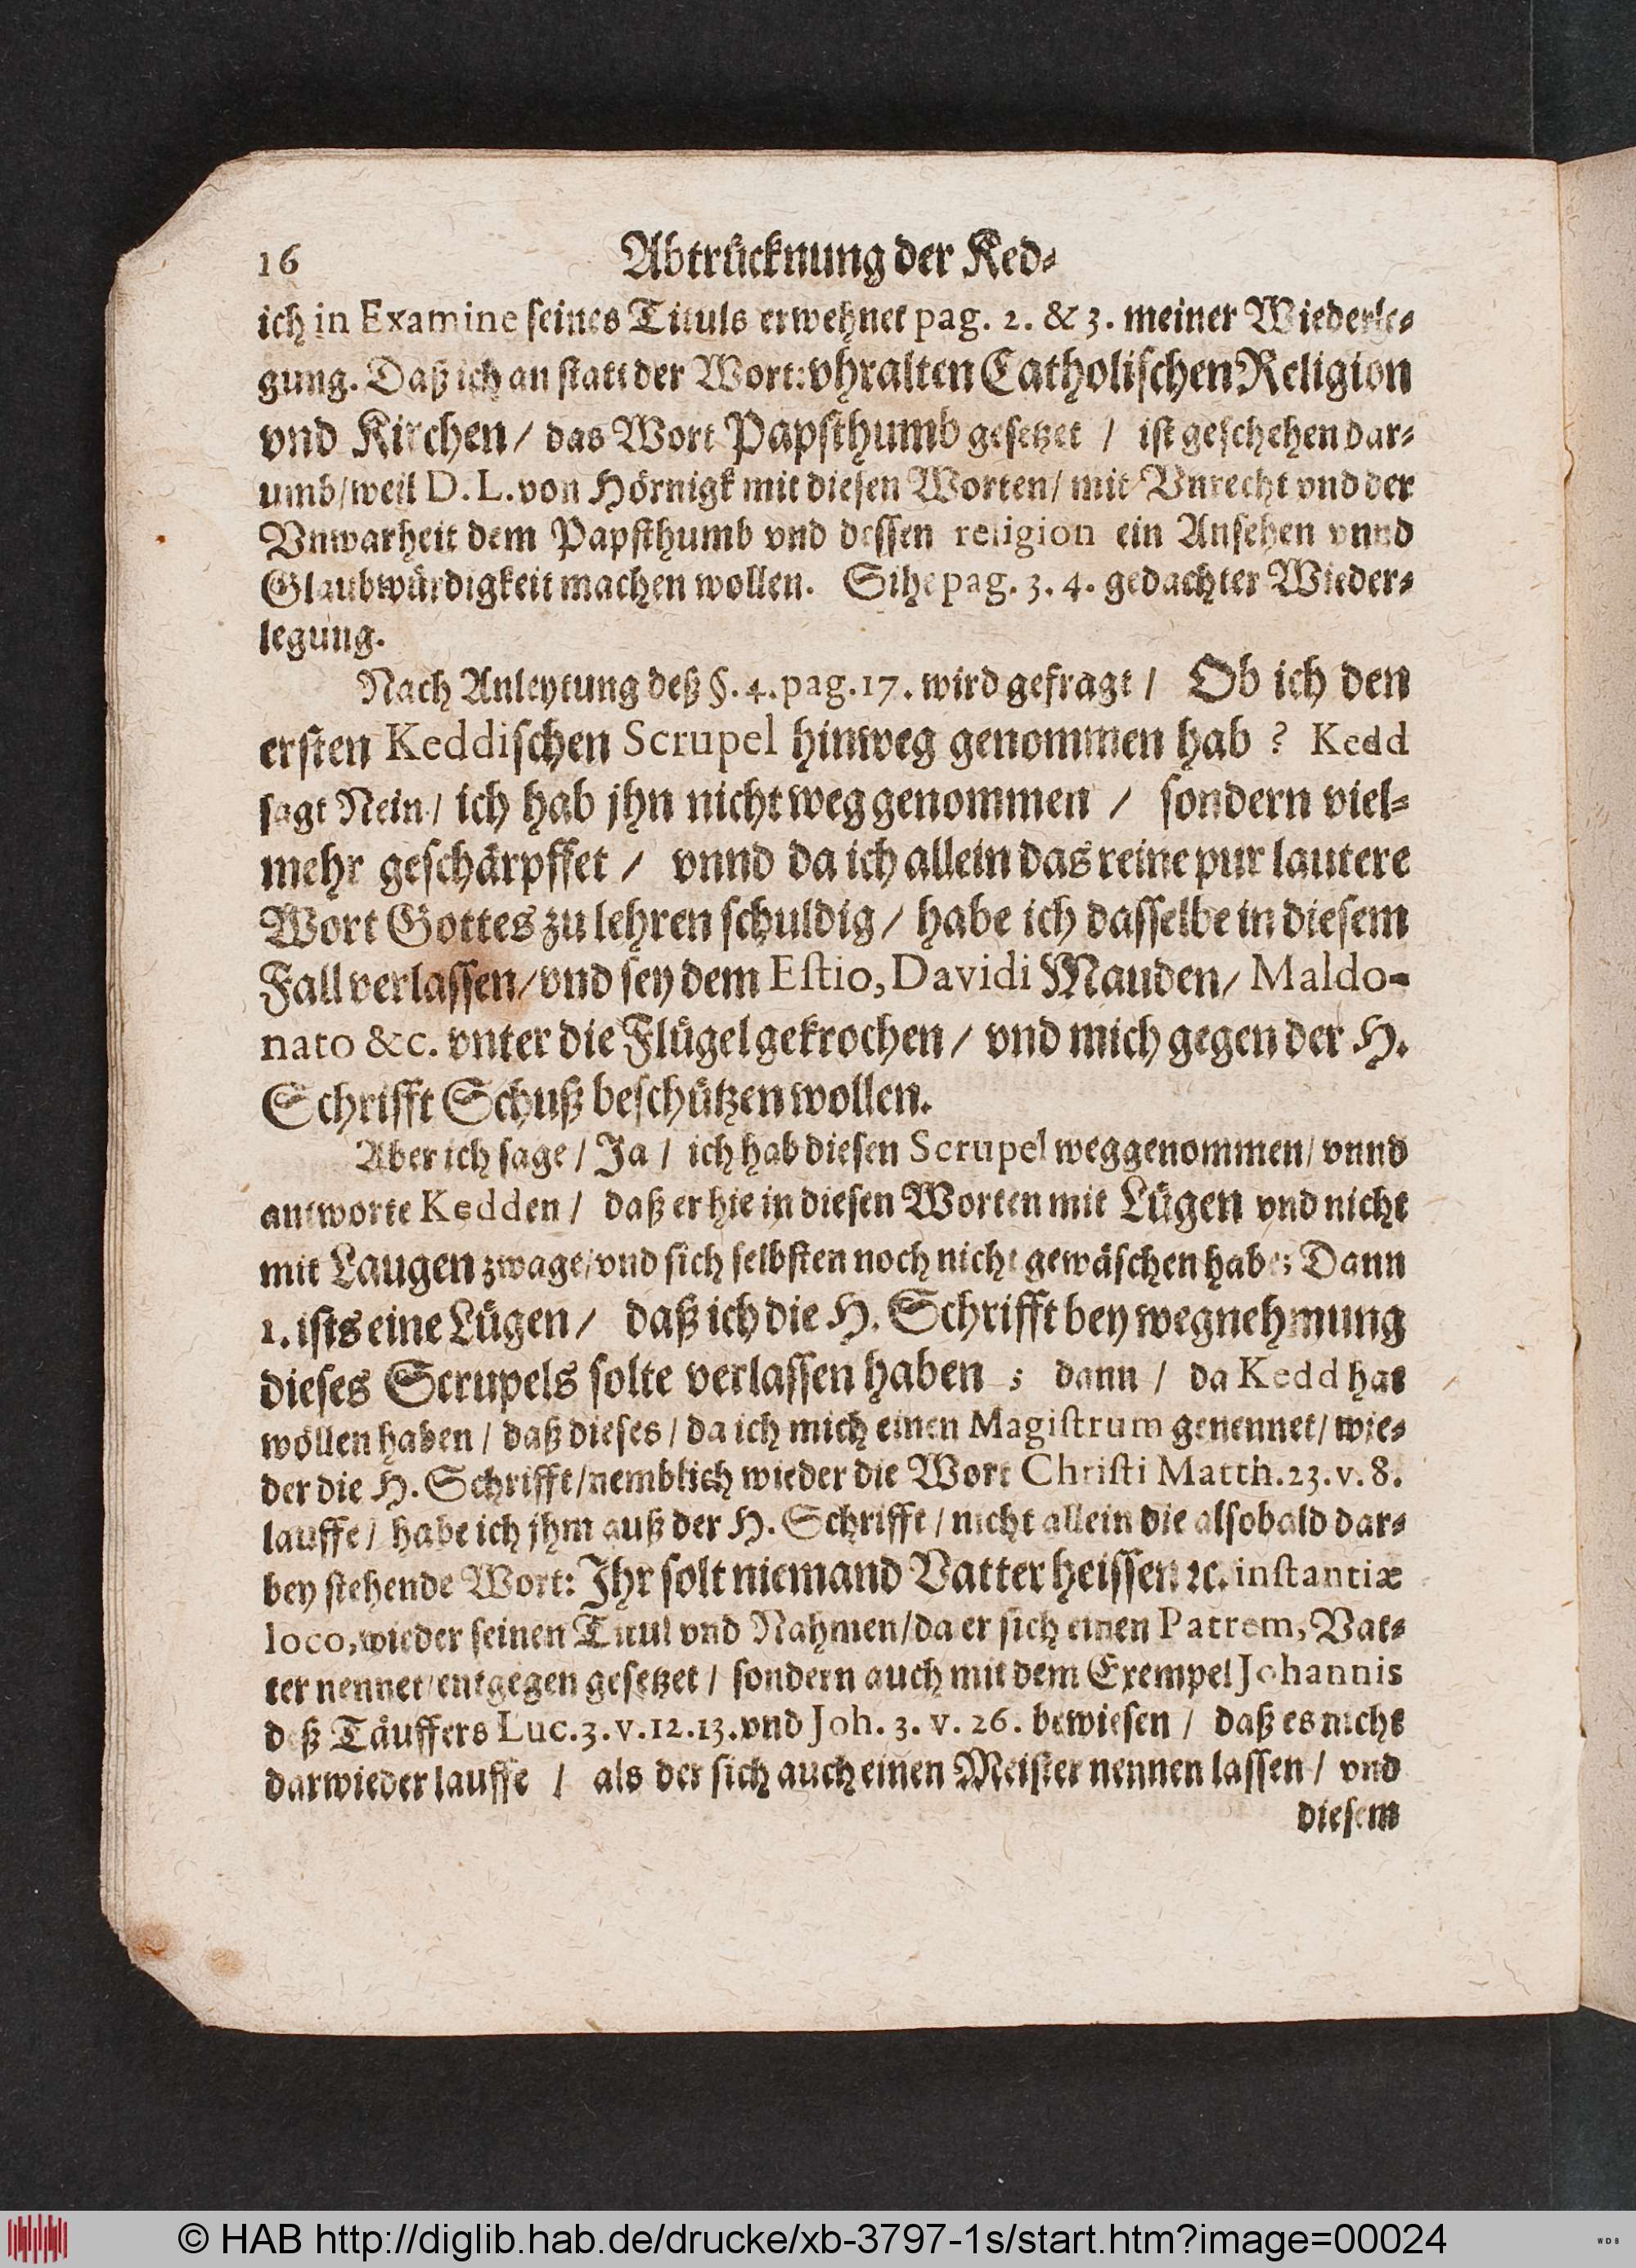 16 Abtrücknung der Ked-
ich in Examine seines Tituls erwehnet pag. 2. & 3. meiner Wiederle-
gung. Daß ich an statt der Wort: vhralten Catholischen Religion
vnd Kirchen / das Wort Papsthumb gesetzet / ist geschehen dar-
umb / weil D. L. von Hörnigk mit diesen Worten / mit Vnrecht vnd der
Vnwarheit dem Papsthumb vnd dessen religion ein Ansehen vnnd
Glaubwürdigkeit machen wollen. Sihe pag. 3. 4. gedachter Wieder-
legung.
Nach Anleytung deß §. 4. pag. 17. wird gefragt / Ob ich den
ersten Keddischen Scrupel hinweg genommen hab ? Kedd
sagt Nein / ich hab jhn nicht weggenommen / sondern viel-
mehr geschärpffet / vnnd da ich allein das reine pur lautere
Wort Gottes zu lehren schuldig / habe ich dasselbe in diesem
Fall verlassen / vnd sey dem Estio, Davidi Mauden / Maldo-
nato &c. vnter die Flügel gekrochen / vnd mich gegen der H.
Schrifft Schuß beschützen wollen.
Aber ich sage / Ja / ich hab diesen Scrupel weggenommen / vnnd
antworte Kedden / daß er hie in diesen Worten mit Lügen vnd nicht
mit Laugen zwage / vnd sich selbsten noch nicht gewäschen habe; Dann
1. ists eine Lügen / daß ich die H. Schrifft bey wegnehmung
dieses Scrupels solte verlassen haben ; dann / da Kedd hat
wöllen haben / daß dieses / da ich mich einen Magistrum genennet / wie-
der die H. Schrifft / nemblich wieder die Wort Christi Matth. 23. v. 8.
lauffe / habe ich jhm auß der H. Schrifft / nicht allein die alsobald dar-
bey stehende Wort: Ihr solt niemand Vatter heissen ꝛc. instantiæ
loco, wieder seinen Titul vnd Nahmen / da er sich einen Patrem, Vat-
ter nennet / entgegen gesetzet / sondern auch mit dem Exempel Johannis
deß Täuffers Luc. 3. v. 12. 13. vnd Joh. 3. v. 26. bewiesen / daß es nicht
darwieder lauffe / als der sich auch einen Meister nennen lassen / vnd
diesem
© HAB http://diglib.hab.de/drucke/xb-3797-1s/start.htm?image=00024
WDB